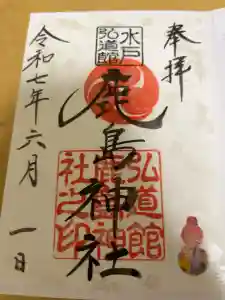 奉拝
水戸
弘道館
鹿島神社
弘道館
鹿島神
社之印
令和七年六月
一日